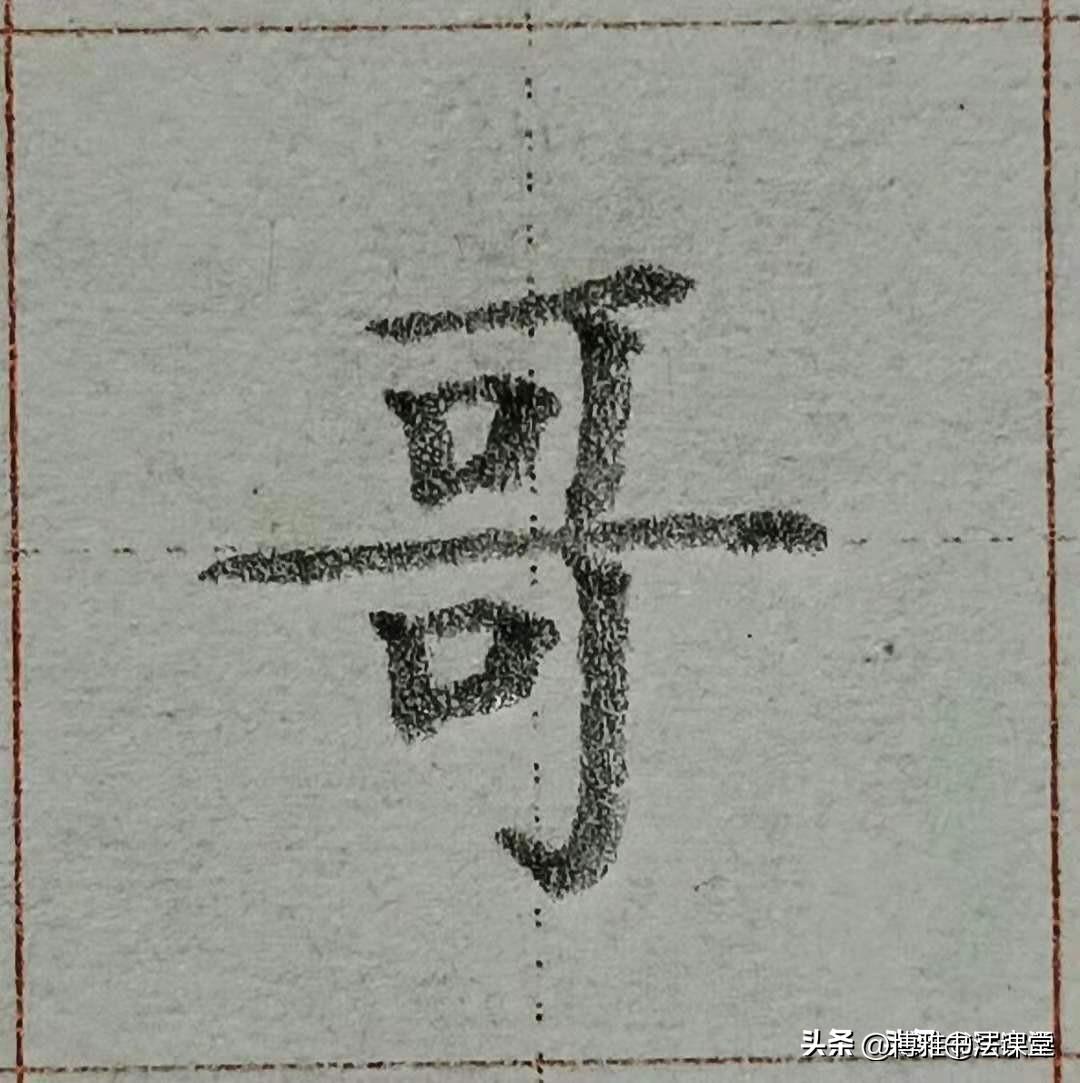 哥
头条 @博雅书法课堂